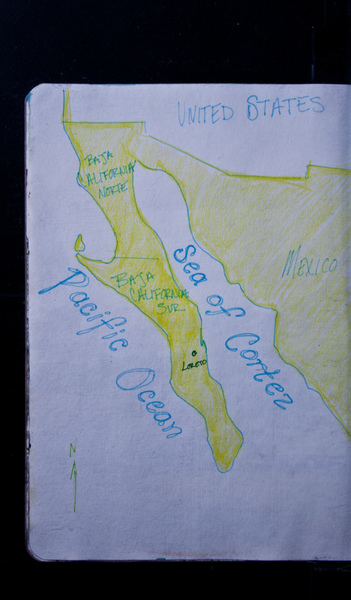 UNITED STATES
BAJA
CALIFORNIA
NORTE
MEXICO
Sea of Cortez
BAJA
CALIFORNIA
SUR
LORETO
Pacific Ocean
N